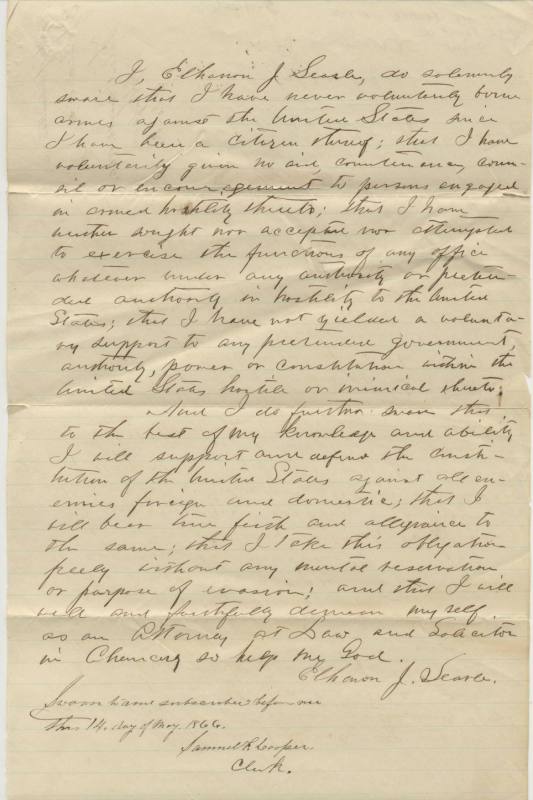 I, Elhanon J. Searle, do solemnly
swear that I have never voluntarily borne
arms against the United States since
I have been a citizen thereof; that I have
voluntarily given no aid, countenance, coun-
sil or encouragement to persons engaged
in armed hostility thereto; that I have
neither sought nor accepted nor attempted
to exercise the functions of any office
whatever under any authority or preten-
ded authority in hostility to the United
States; that I have not yielded a volunta-
ry support to any pretended government,
authority, power or constitution within the
United States hostile or inimical thereto;
And I do further swear that
to the best of my knowledge and ability
I will support and defend the consti-
tution of the United States against all en-
emies foreign and domestic; that I
will bear true faith and allegiance to
the same; that I take this obligation
freely without any mental reservation
or purpose of evasion; and that I will
well and faithfully demean myself
as an Attorney at Law and Solicitor
in Chancery so help my God.
Elhanon J. Searle.
Sworn to and subscribed before me
this 14. day of May. 1866.
Samuel R Cooper.
Clerk.